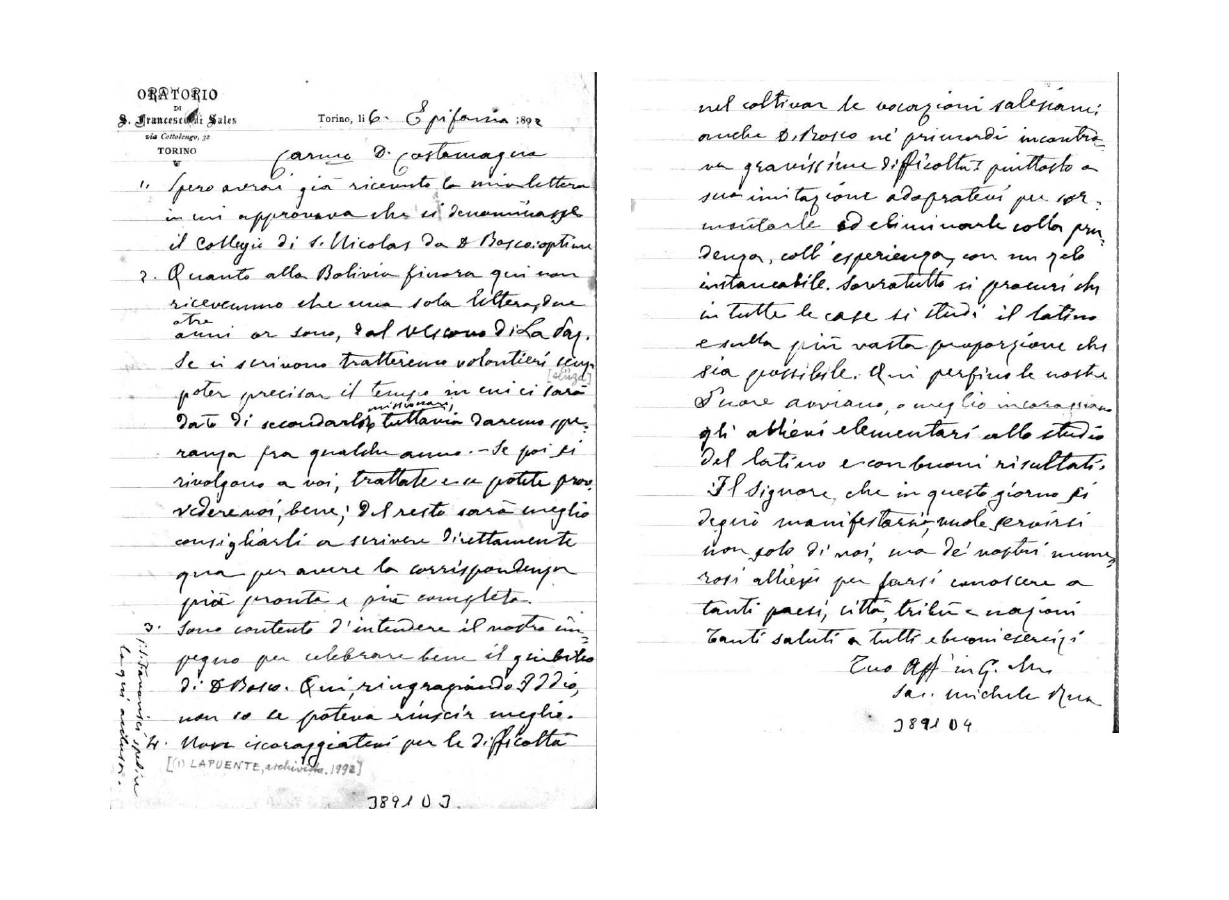 ORATORIO
DI
S. Francesco di Sales
via Cottolengo, 32
TORINO
Torino, li 6. Epifania 1892
Carmo D. Costamagna
1. Spero averai già ricevuto la mia lettera
in cui approvava che si denominasse
il Collegio di S. Nicolas da D Bosco: optime
2. Quanto alla Bolivia finora qui non
ricevemmo che una sola lettera, due
otre
anni or sono, dal Vescovo di La Paz.
Se ci scrivono tratteremo volontieri, senza
[senza]
poter precisar il tempo in cui ci sarà
missionari,
dato di secondarlo tuttavia daremo spe-
ranza fra qualche anno. - Se poi si
rivolgono a voi, trattate e se potete prov-
vedere voi, bene; del resto sarà meglio
consigliarli a scrivere direttamente
qua per avere la corrispondenza
più pronta e più completa.
3. Sono contento d'intendere il vostro im-
pegno per celebrare bene il giubileo
di D Bosco. Qui, ringraziando Iddio,
non so se poteva riuscir meglio.
4. Non iscoraggiatevi per le difficoltà
[(1) LAPUENTE, archivista. 1992]
spedire
la qui acclusa.
3891 D3
nel coltivar le vocazioni salesiani
anche D. Bosco ne' primordi incontra-
va gravissime difficoltà; piuttosto a
sua imitazione adopratevi per sor-
montarle ed eliminarle colla pru-
denza, coll' esperienza, con un zelo
instancabile. Sovratutto si procuri che
in tutte le case si studi il latino
e sulla più vasta proporzione che
sia possibile. Qui perfino le nostre
Suore avviano, o meglio incoraggiano
gli allievi elementari allo studio
del latino e con buoni risultati.
Il Signore, che in questo giorno si
degnò manifestarsi, vuole servirsi
non solo di voi, ma de' vostri nume-
rosi allievi per farsi conoscere a
tanti paesi, città, tribù e nazioni
Tanti saluti a tutti e buoni esercizi
Tuo Aff in G. M.
Sac. Michele Rua
3891 D4